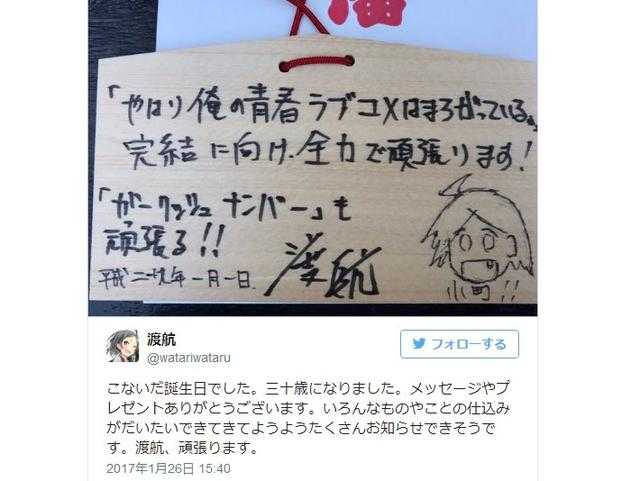 「やはり俺の青春ラブコメはまちがっている。」
完結に向け、全力で頑張ります!
「ガーリッシュ ナンバー」も
頑張る!!
平成二十九年一月一日.
渡航
小町!!
渡航
@watariwataru
フォローする
こないだ誕生日でした。三十歳になりました。メッセージやプ
レゼントありがとうございます。いろんなものやことの仕込み
がだいたいできてきてようようたくさんお知らせできそうで
す。渡航、頑張ります。
2017年1月26日 15:40